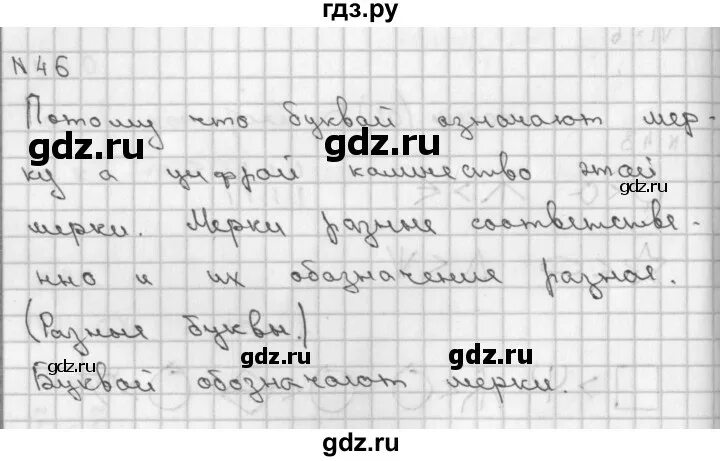 гдз.ру
N 46
Потому что буквай означают мер-
ку а цифрай количество этай
мерки. Мерки разные соответстве-
нно и их обозначения разная.
(Разные буквы.)
Буквай обозначают мерки.
gdz.ru
gdz.ru
gdz.ru
gdz.ru
gdz.ru
gdz.ru
gdz.ru
gdz.ru
gdz.ru
gdz.ru
gdz.ru